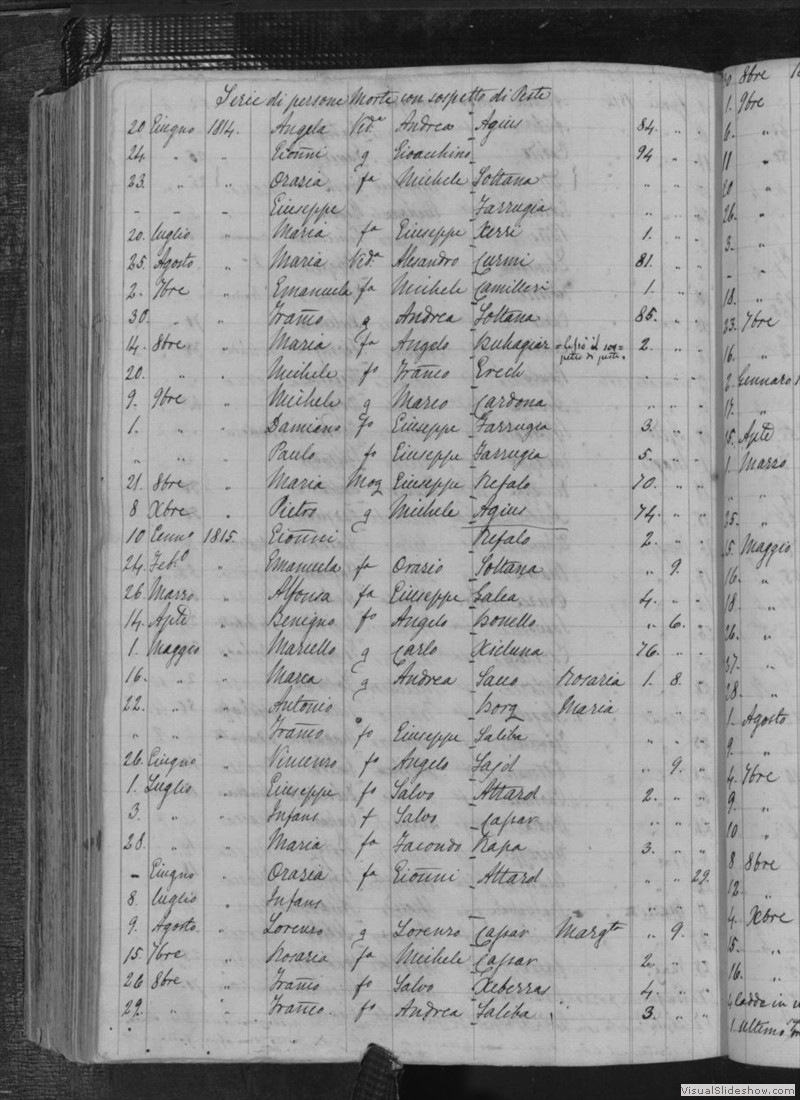 Serie di persone Morte con sospetto di Peste
20 Giugno 1814. Angela Vid.a Andrea Agius 84. " "
24 " " Gioñni g Gioacchino 94 " "
23. " " Orazia fa Michele Soltana " " "
- - - Giuseppe Farrugia " " "
20. Luglio " Maria fa Giuseppe Xerri 1. " "
25. Agosto " Maria Vid.a Alesandro Curmi 81. " "
2. 7bre " Emanuela fa Michele Camilleri 1. " "
30. " " Frañco g Andrea Soltana 85. " "
14. 8bre " Maria fa Angelo Buhagiar = Lasciò il sos= petto di peste. 2. " "
20. " " Michele fo Franco Grech " " "
9. 9bre " Michele g Marco Cardona " " "
1. " " Damiano fo Giuseppe Farrugia 3. " "
" " " Paulo fo Giuseppe Farrugia 5. " "
21. 8bre " Maria Mog Giuseppe Refalo 70. " "
8 Xbre " Pietro g Michele Agius 74. " "
10 Genn.o 1815. Gioñni Refalo 2. " "
24. Feb.o " Emanuela fa Orazio Soltana " 9. "
26 Marzo " Alfonsa fa Giuseppe Galea 4. " "
14. Aple " Benigno fo Angelo Bonello " 6. "
1. Maggio " Marcello g Carlo Xicluna 76. " "
16. " " Marca g Andrea Saco Rosaria 1. 8. "
22. " " Antonio Borg Maria " " "
" " " Frañco fo Giuseppe Saliba " " "
26. Giugno " Vincenzo fo Angelo Sajd " 9. "
1. Luglio " Giuseppe fo Salvo Attard 2. " "
3. " " Infans f Salvo Capar " " "
28. " " Maria fa Facondo Rapa 3. " "
- Giugno " Orazia fa Gioñni Attard " " 22.
8. Luglio " Infans " " "
9. Agosto " Lorenzo g Lorenzo Capar Margta " 9. "
15. 7bre " Rosaria fa Michele Capar 2. " "
26 8bre " Frañco fo Salvo Xeberras 4. " "
29. " " Franco. fo Andrea Saliba 3. " "
8bre
1. 9bre
6. "
11 "
20 "
26. "
3. "
- "
18. "
23. 7bre
16. "
2. Gennaro 1
17. "
15. Aple
1. Marzo
" "
25. "
15. Maggio
16. "
18. "
26. "
27. "
28. "
1. Agosto
9. "
4. 7bre
9. "
10 "
8 8bre
12. "
4. Xbre
15. "
16. "
cadde in
1. ultimo
VisualSlideshow.com